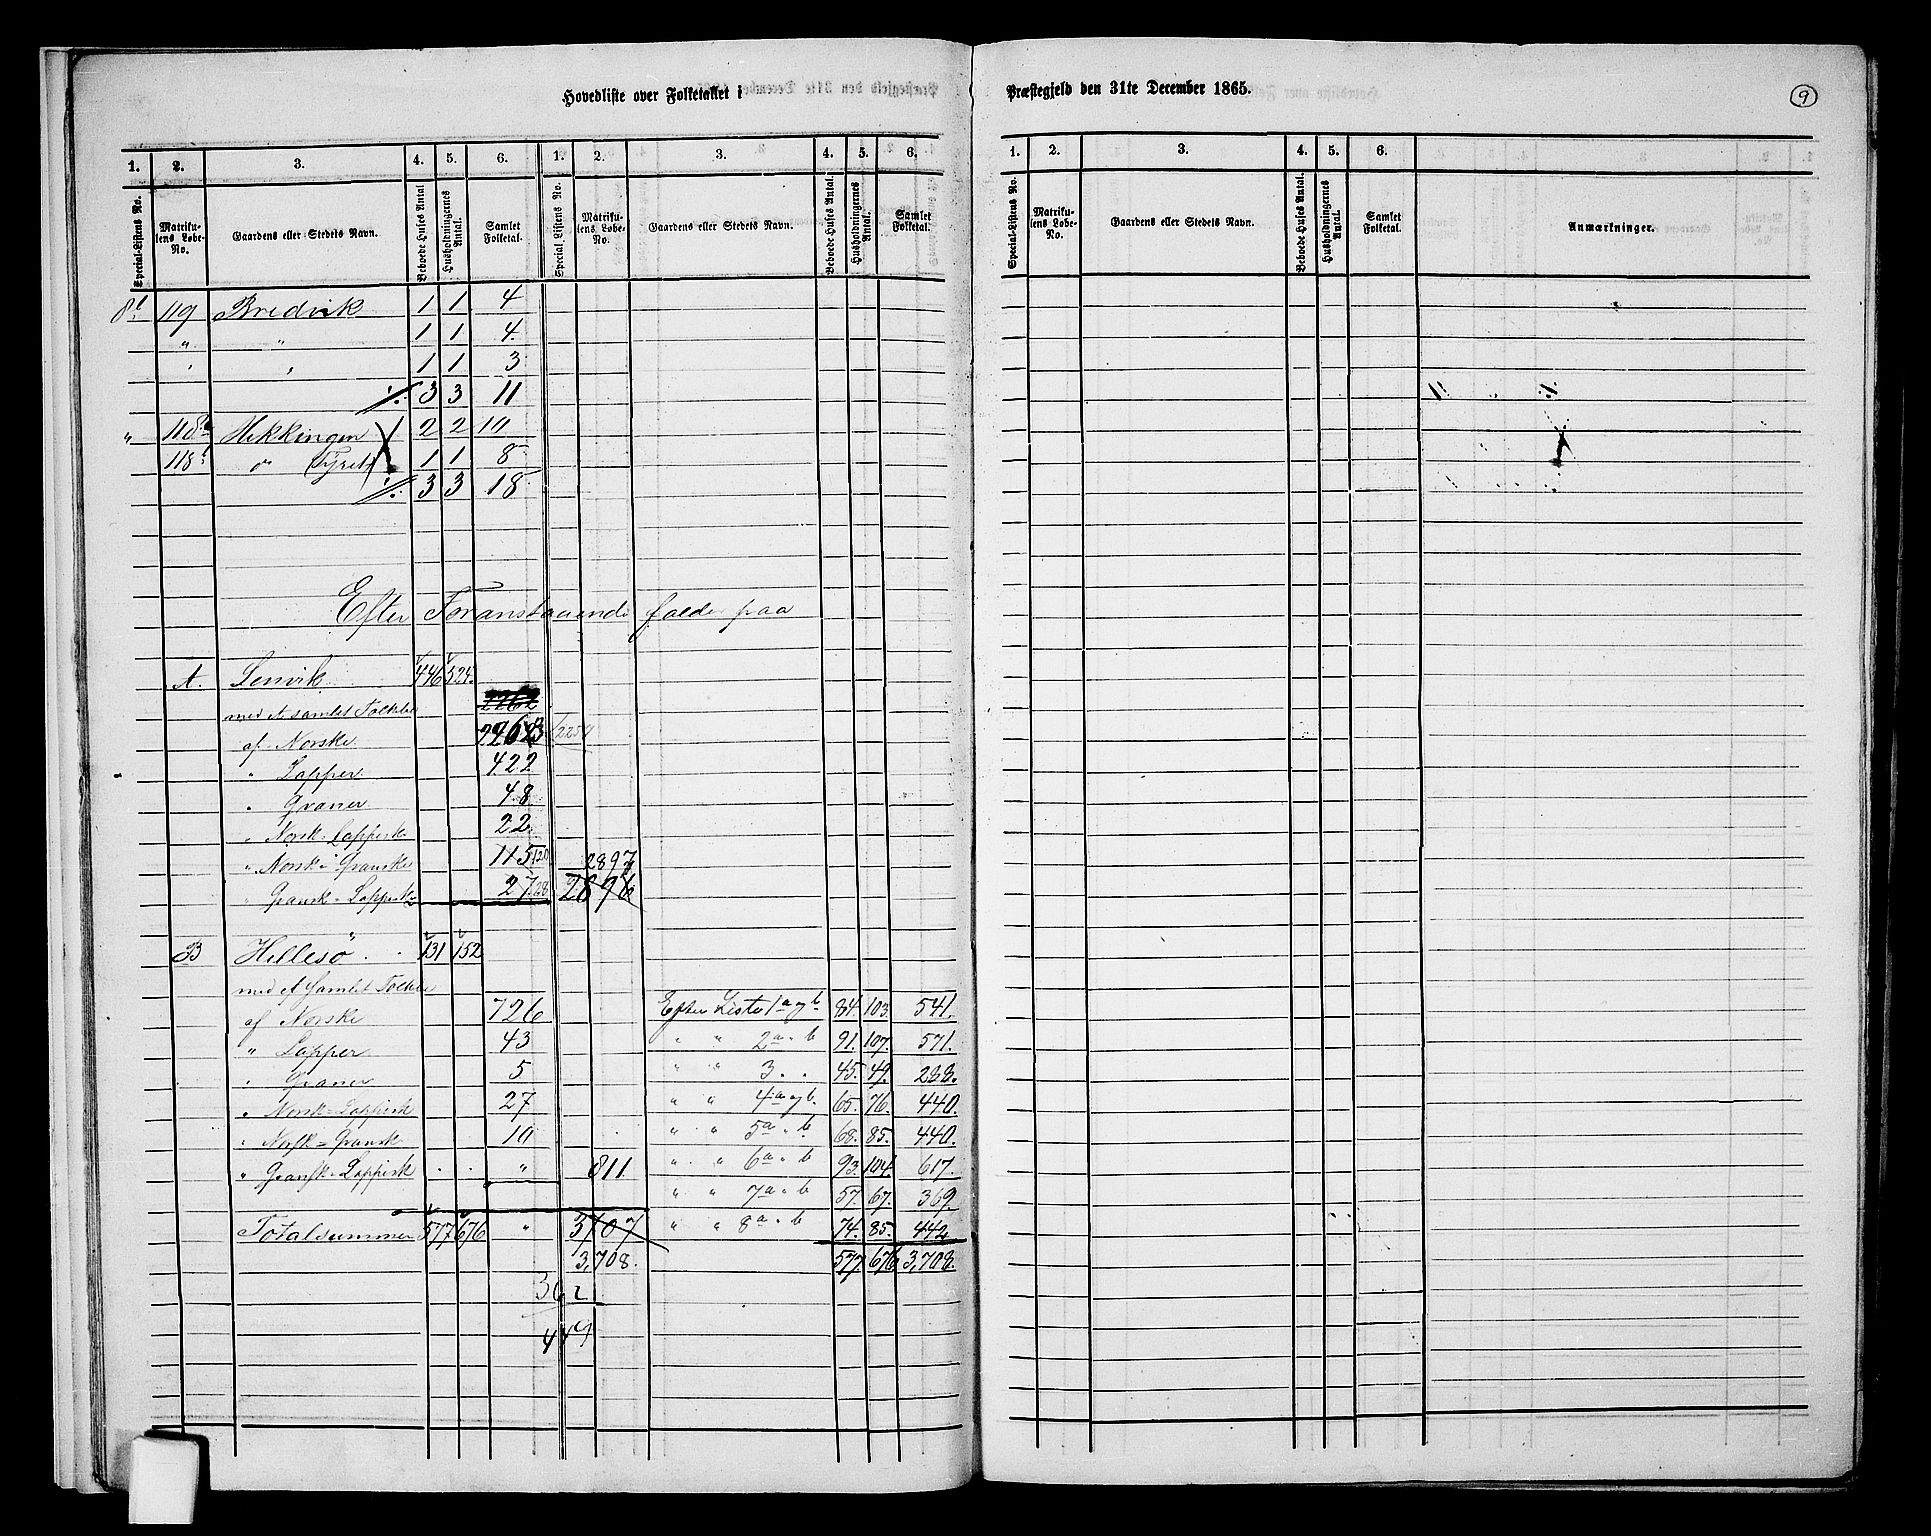 Hovedliste over Folketallet i
Præstegjeld den 31te December 1865.
9
1. 2. 3. 4. 5. 6. 1. 2. 3. 4. 5. 6.
Special-Listens No. Matrikulens Løbe-No. Gaardens eller Stedets Navn. Beboede Huses Antal Husholdningernes Antal. Samlet Folketal. Special Listens No. Matrikulens Løbe-No. Gaardens eller Stedets Navn. Beboede Huses Antal. Husholdningernes Antal. Samlet Folketal.
1. 2. 3. 4. 5. 6.
Special-Listens No. Matrikulens Løbe-No. Gaardens eller Stedets Navn. Beboede Huses Antal. Husholdningernes Antal. Samlet Folketal. Anmærkninger.
8b 119 Bredvik 1 1 4
" " 1 1 4
" " 1 1 3
3 3 11
" 118a Hekkingen 2 2 10
118b do Fyret 1 1 8
3 3 18
Efter Foranstaaende falder paa
A. Lenvik 446 524
med et samlet Folketal 2262
af Norske 2263 2257
" Lapper 422
" Qvæner 48
" Norsk-Lappiske 22
" Norske Qvænske 115 120 2897
" Qvænsk-Lappiske 27 28 2896
B Hillesö 131 152
med et samlet Folketal
af Norske 726
" Lapper 43
" Qvæner 5
" Norsk-Lappisk 27
" Norsk-Qvænsk 10
" Qvænsk-Lappisk " 811
Totalsummer 577 676 " 3707
3,708.
362
449
Efter Liste 1a og b 84. 103. 541.
" " 2a " b 91. 107. 571.
" " 3. . 45. 49. 288.
" " 4a og b. 65. 76. 440.
" " 5a " b. 68. 85. 440.
" " 6a " b 93. 104. 617.
" " 7a " b 57. 67. 369.
" " 8a " b 74. 85. 442
577 676 3,708.